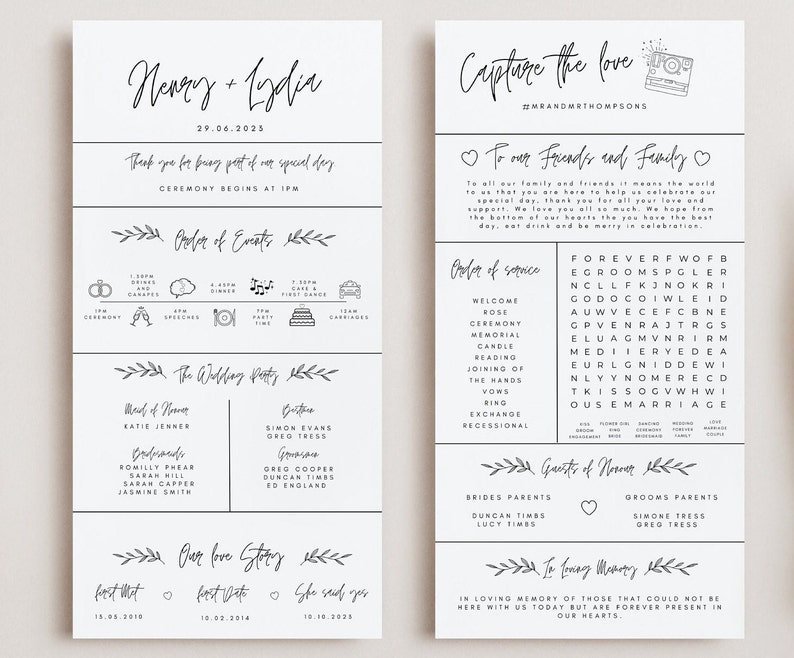 Henry + Lydia
29.06.2023
Thank you for being part of our special day
CEREMONY BEGINS AT 1PM
Order of Events
1PM
CEREMONY
1.30PM
DRINKS
AND
CANAPES
4PM
SPEECHES
4.45PM
DINNER
7PM
PARTY
TIME
7.30PM
CAKE &
FIRST DANCE
12AM
CARRIAGES
The Wedding Party
Maid of Honour
KATIE JENNER
Bridesmaids
ROMILLY PHEAR
SARAH HILL
SARAH CAPPER
JASMINE SMITH
Bestmen
SIMON EVANS
GREG TRESS
Groomsmen
GREG COOPER
DUNCAN TIMBS
ED ENGLAND
Our love Story
first Met
13.05.2010
first Date
10.02.2014
She said yes
10.10.2023
Capture the love
#MRANDMRTHOMPSONS
To our Friends and Family
To all our family and friends it means the world
to us that you are here to help us celebrate our
special day, thank you for all your love and
support. We love you all so much. We hope from
the bottom of our hearts the you have the best
day, eat drink and be merry in celebration.
Order of service
WELCOME
ROSE
CEREMONY
MEMORIAL
CANDLE
READING
JOINING OF
THE HANDS
VOWS
RING
EXCHANGE
RECESSIONAL
F O R E V E R F W O F B
E G R O O M S P G L E R
N C L L F K J N O K R I
G O D O C O I W L E I D
A U W V E C E F C B N E
G P V E N R A J T R G S
E L U A G M V N R I R M
M E D I I E R Y E D E A
E U R L G N I D D E W I
N L Y Y N O M E R E C D
T K I S S O G V W H W I
O U S E M A R R I A G E
KISS
GROOM
ENGAGEMENT
FLOWER GIRL
RING
BRIDE
DANCING
CEREMONY
BRIDESMAID
WEDDING
FOREVER
FAMILY
LOVE
MARRIAGE
COUPLE
Guests of Honour
BRIDES PARENTS
DUNCAN TIMBS
LUCY TIMBS
GROOMS PARENTS
SIMONE TRESS
GREG TRESS
In Loving Memory
IN LOVING MEMORY OF THOSE THAT COULD NOT BE
HERE WITH US TODAY BUT ARE FOREVER PRESENT IN
OUR HEARTS.